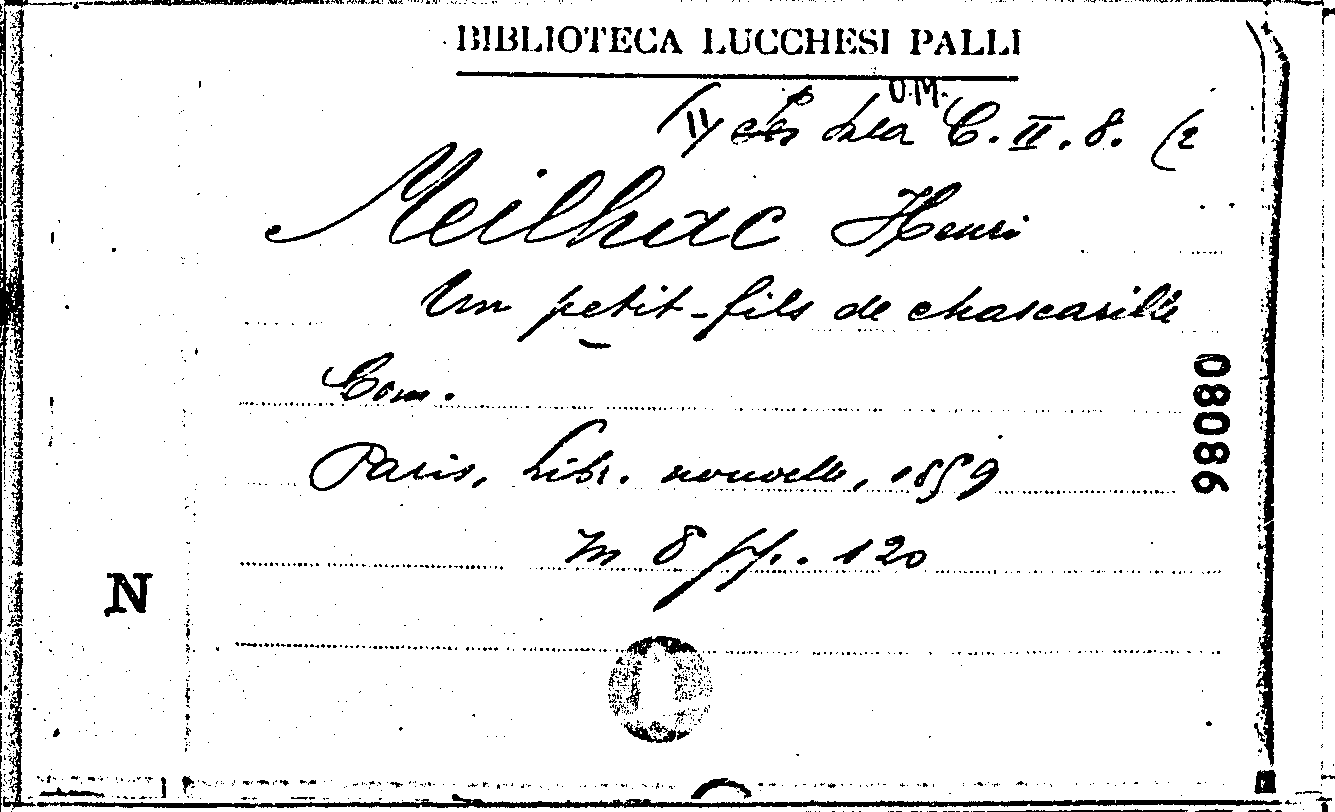 BIBLIOTECA LUCCHESI PALLI
U.M.
C. II. 8. (2
Meilhac Henri
Un petit-fils de chascarille
Com.
Paris, Libr. nouvelle, 1859
In 8 pp. 120
N
08086